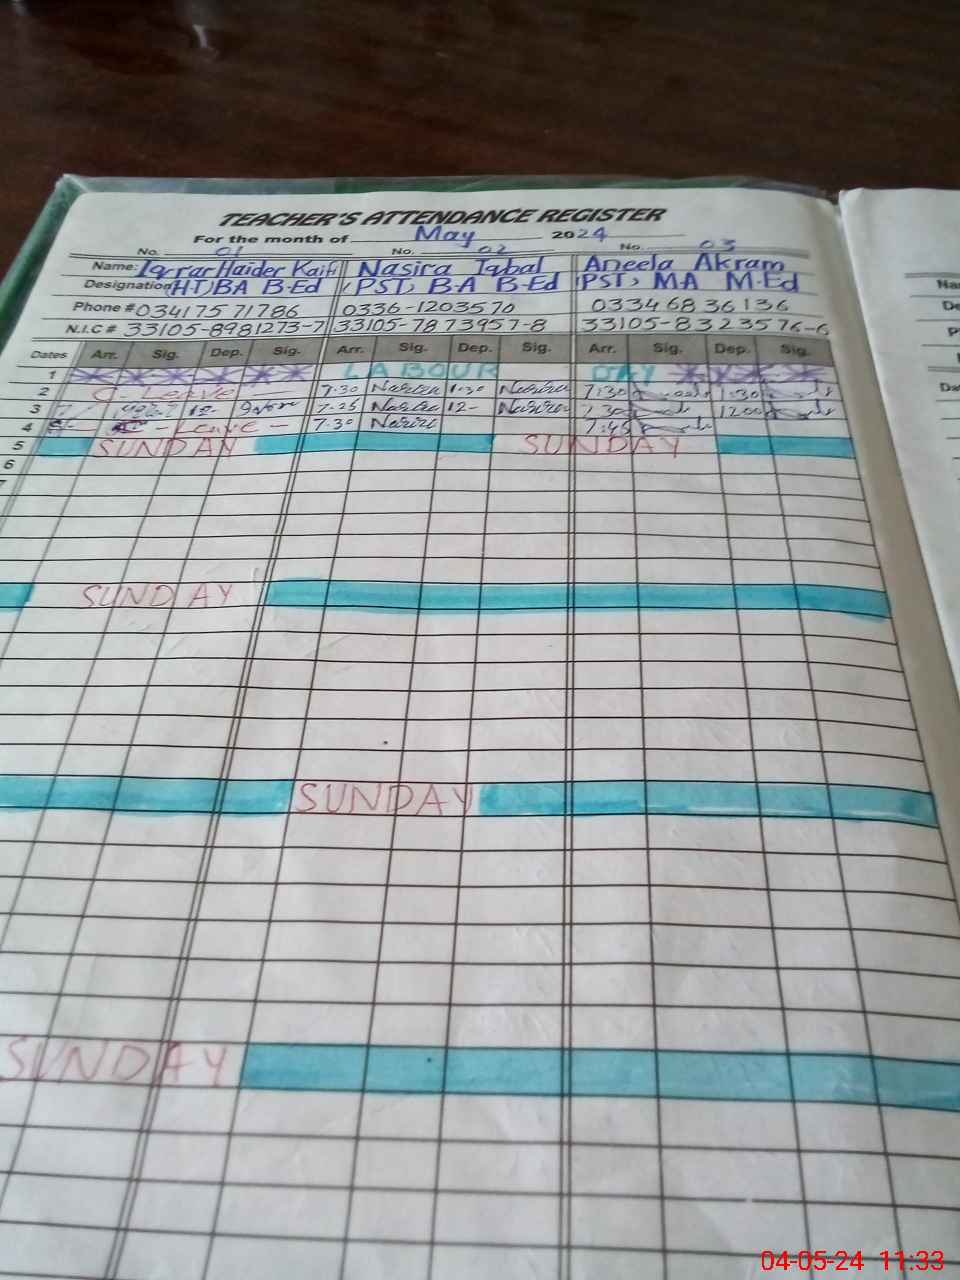 TEACHER'S ATTENDANCE REGISTER
For the month of May 2024
No. 01 No. 02 No. 03
Name: Iqrar Haider Kaifi Nasira Iqbal Aneela Akram
Designation (HT) BA B-Ed (PST) B-A B-Ed (PST) M-A M-Ed
Phone # 03417571786 0336-1203570 03346836136
N.I.C # 33105-8981273-7 33105-7873957-8 33105-8323576-6
Dates Arr. Sig. Dep. Sig. Arr. Sig. Dep. Sig. Arr. Sig. Dep. Sig.
1 LABOUR DAY
2 C-Leave 7-30 Nasira 1-30 Nasira 7:30 1:30
3 12- 7-25 Nasira 12- Nasira 7:30 1200
4 C-Leave- 7-30 Nasira 7:45
5 SUNDAY SUNDAY
6
SUNDAY
SUNDAY
SUNDAY
04-05-24 11:33